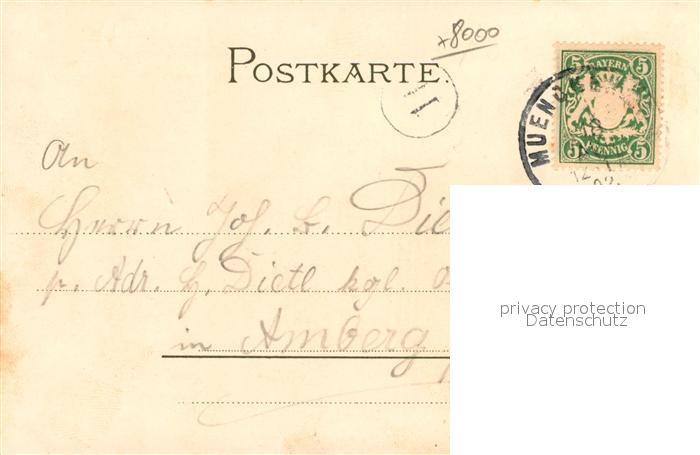 +8000
POSTKARTE.
1
BAYERN
5 5
5 PFENNIG 5
MUENCHEN
An
Herrn Joh. b.
p. Adr. H. Dietl kgl.
in Amberg
privacy protection
Datenschutz